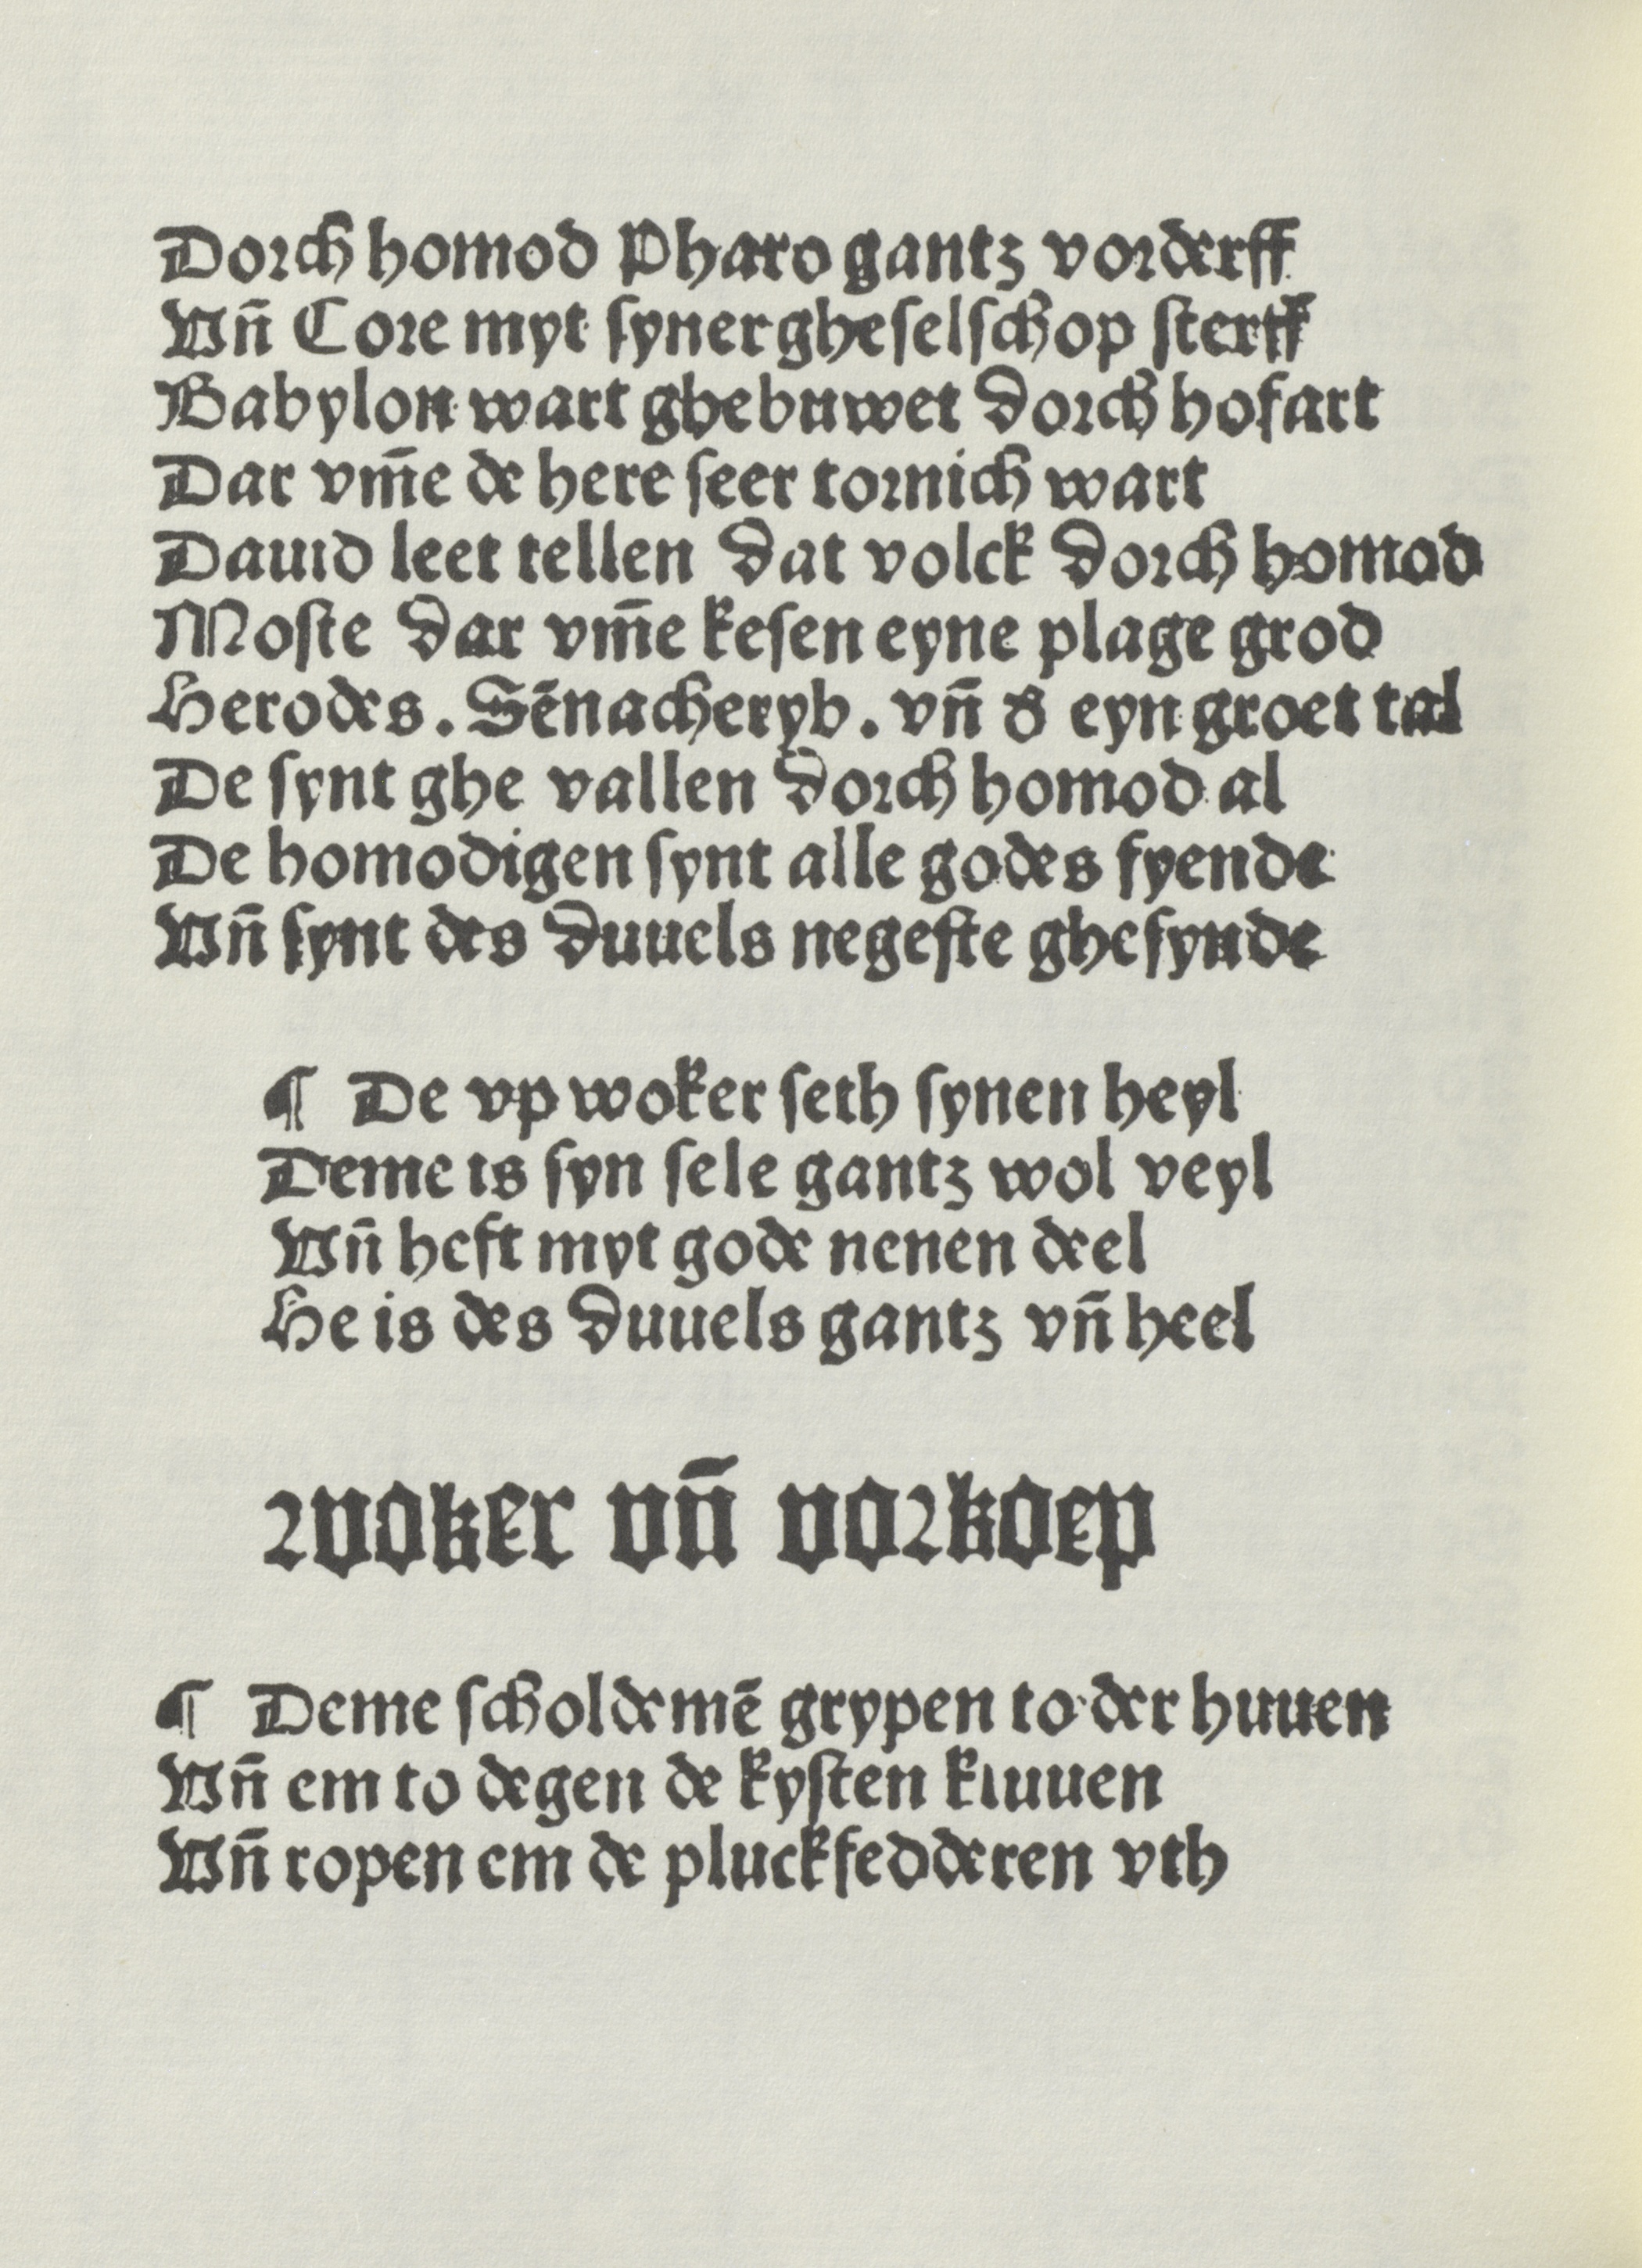 Dorch homod Pharo gantz vorderff
Vñ Core myt ſyner gheſelſchop ſterff
Babylon wart ghebuwet dorch hofart
Dar vm̄e de here ſeer tornich wart
Dauid leet tellen dat volck dorch homod
Moſte dar vm̄e keſen eyne plage grod
Herodes. Sēnacheryb. vñ d̕ eyn groet tal
De ſynt ghe vallen dorch homod al
De homodigen ſynt alle godes fyende
Vñ ſynt des duuels negeſte gheſynde
¶ De vp woker ſeth ſynen heyl
Deme is ſyn ſele gantz wol veyl
Vñ heft myt gode nenen deel
He is des duuels gantz vñ heel
woker vñ vorkoep
¶ Deme ſcholdemē grypen to der huuen
Vñ em to degen de kyſten kluuen
Vñ ropen em de pluckfedderen vth